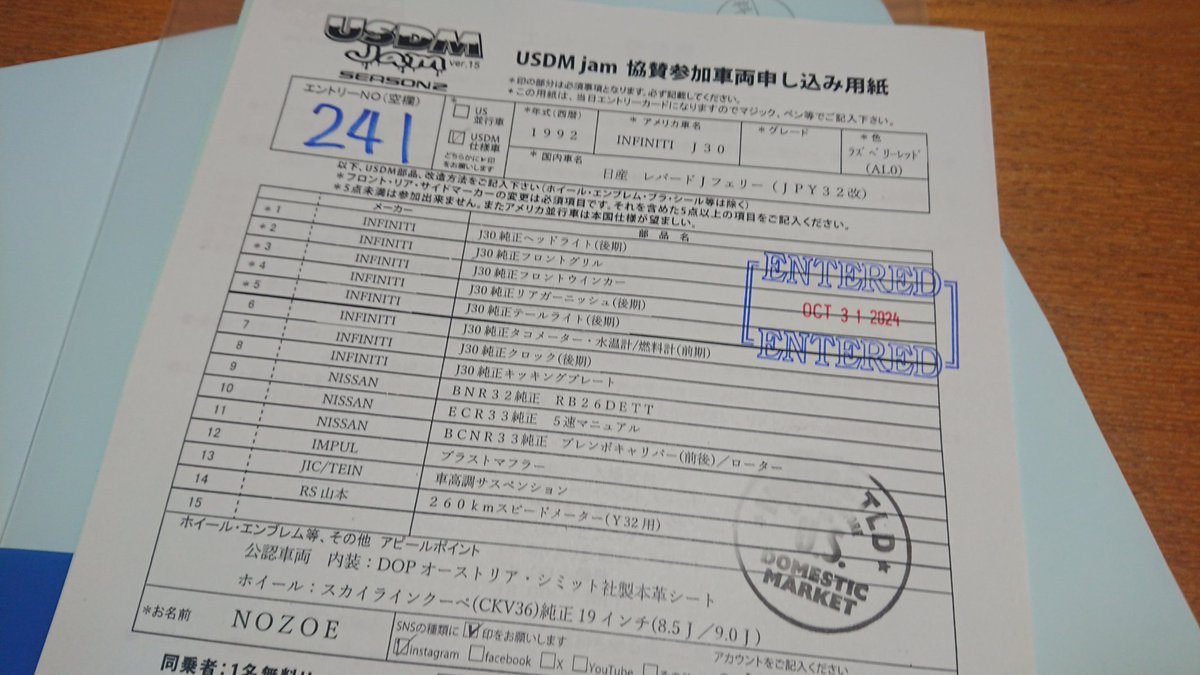 USDM
Jam ver.15
SEASON2
USDM jam 協賛参加車両申し込み用紙
*印の部分は必須事項となります。必ず記載してください。
*この用紙は、当日エントリーカードになりますのでマジック、ペン等でご記入下さい。
エントリーNO(空欄)
241
US並行車
USDM仕様車
どちらかにレ印をお願いします
*年式(西暦)
1992
*アメリカ車名
INFINITI J30
*グレード
*色
ラズベリーレッド
(AL0)
*国内車名
日産 レパードJフェリー(JPY32改)
以下、USDM部品、改造方法をご記入下さい(ホイール・エンブレム・プラ・シール等は除く)
*フロント・リア・サイドマーカーの変更は必須項目です。それを含めた5点以上の項目をご記入ください。
*5点未満は参加出来ません。またアメリカ並行車は本国仕様が望ましい。
メーカー 部品名
*1 INFINITI J30純正ヘッドライト(後期)
*2 INFINITI J30純正フロントグリル
*3 INFINITI J30純正フロントウインカー
*4 INFINITI J30純正リアガーニッシュ(後期)
*5 INFINITI J30純正テールライト(後期)
6 INFINITI J30純正タコメーター・水温計/燃料計(前期)
7 INFINITI J30純正クロック(後期)
8 INFINITI J30純正キッキングプレート
9 NISSAN BNR32純正 RB26DETT
10 NISSAN ECR33純正 5速マニュアル
11 NISSAN BCNR33純正 ブレンボキャリパー(前後)/ローター
12 IMPUL ブラストマフラー
13 JIC/TEIN 車高調サスペンション
14 RS山本 260kmスピードメーター(Y32用)
15
ENTERED
OCT 31 2024
ENTERED
U.S.
DOMESTIC
MARKET
ホイール・エンブレム等、その他 アピールポイント
公認車両 内装：DOPオーストリア・シミット社製本革シート
ホイール：スカイラインクーペ(CKV36)純正19インチ(8.5J/9.0J)
*お名前
NOZOE
SNSの種類に✓印をお願いします
instagram facebook X YouTube
アカウントをご記入ください